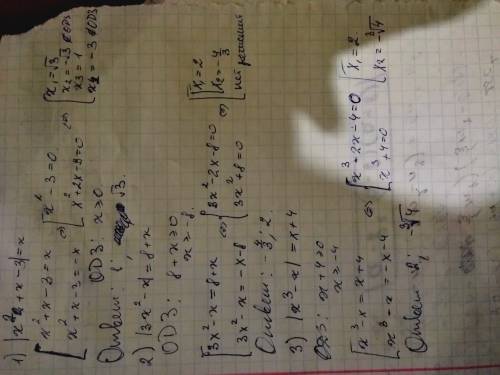 1) |x² + x - 3| = x
[ x² + x - 3 = x
x² + x - 3 = -x ⇔ [ x² - 3 = 0
x² + 2x - 3 = 0 ⇔ [ x₁ = √3
x₂ = -√3 ∉ ОДЗ
x₃ = 1
x₄ = -3 ∉ ОДЗ
ОДЗ: x ≥ 0
Ответ: 1; √3.
2) |3x² - x| = 8 + x
ОДЗ: 8 + x ≥ 0
x ≥ -8.
[ 3x² - x = 8 + x
3x² - x = -x - 8 ⇔ [ 3x² - 2x - 8 = 0
3x² + 8 = 0 ⇔ [ x₁ = 2
x₂ = -4/3
нет решений
Ответ: -4/3; 2.
3) |x³ - x| = x + 4
ОДЗ: x + 4 ≥ 0
x ≥ -4
[ x³ - x = x + 4
x³ - x = -x - 4 ⇔ [ x³ - 2x - 4 = 0
x³ + 4 = 0 [ x₁ = 2.
x₂ = -∛4
Ответ: 2; -∛4